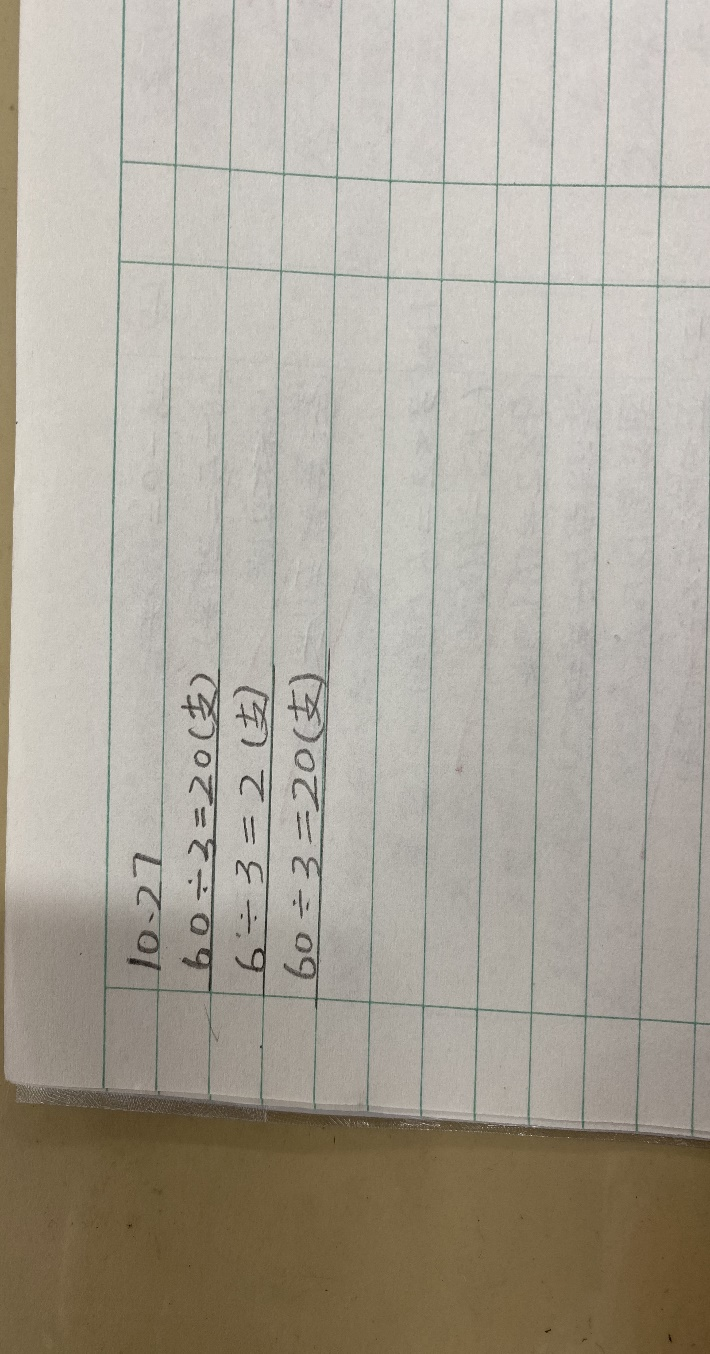 10.27
60÷3=20(支)
6÷3=2(支)
60÷3=20(支)